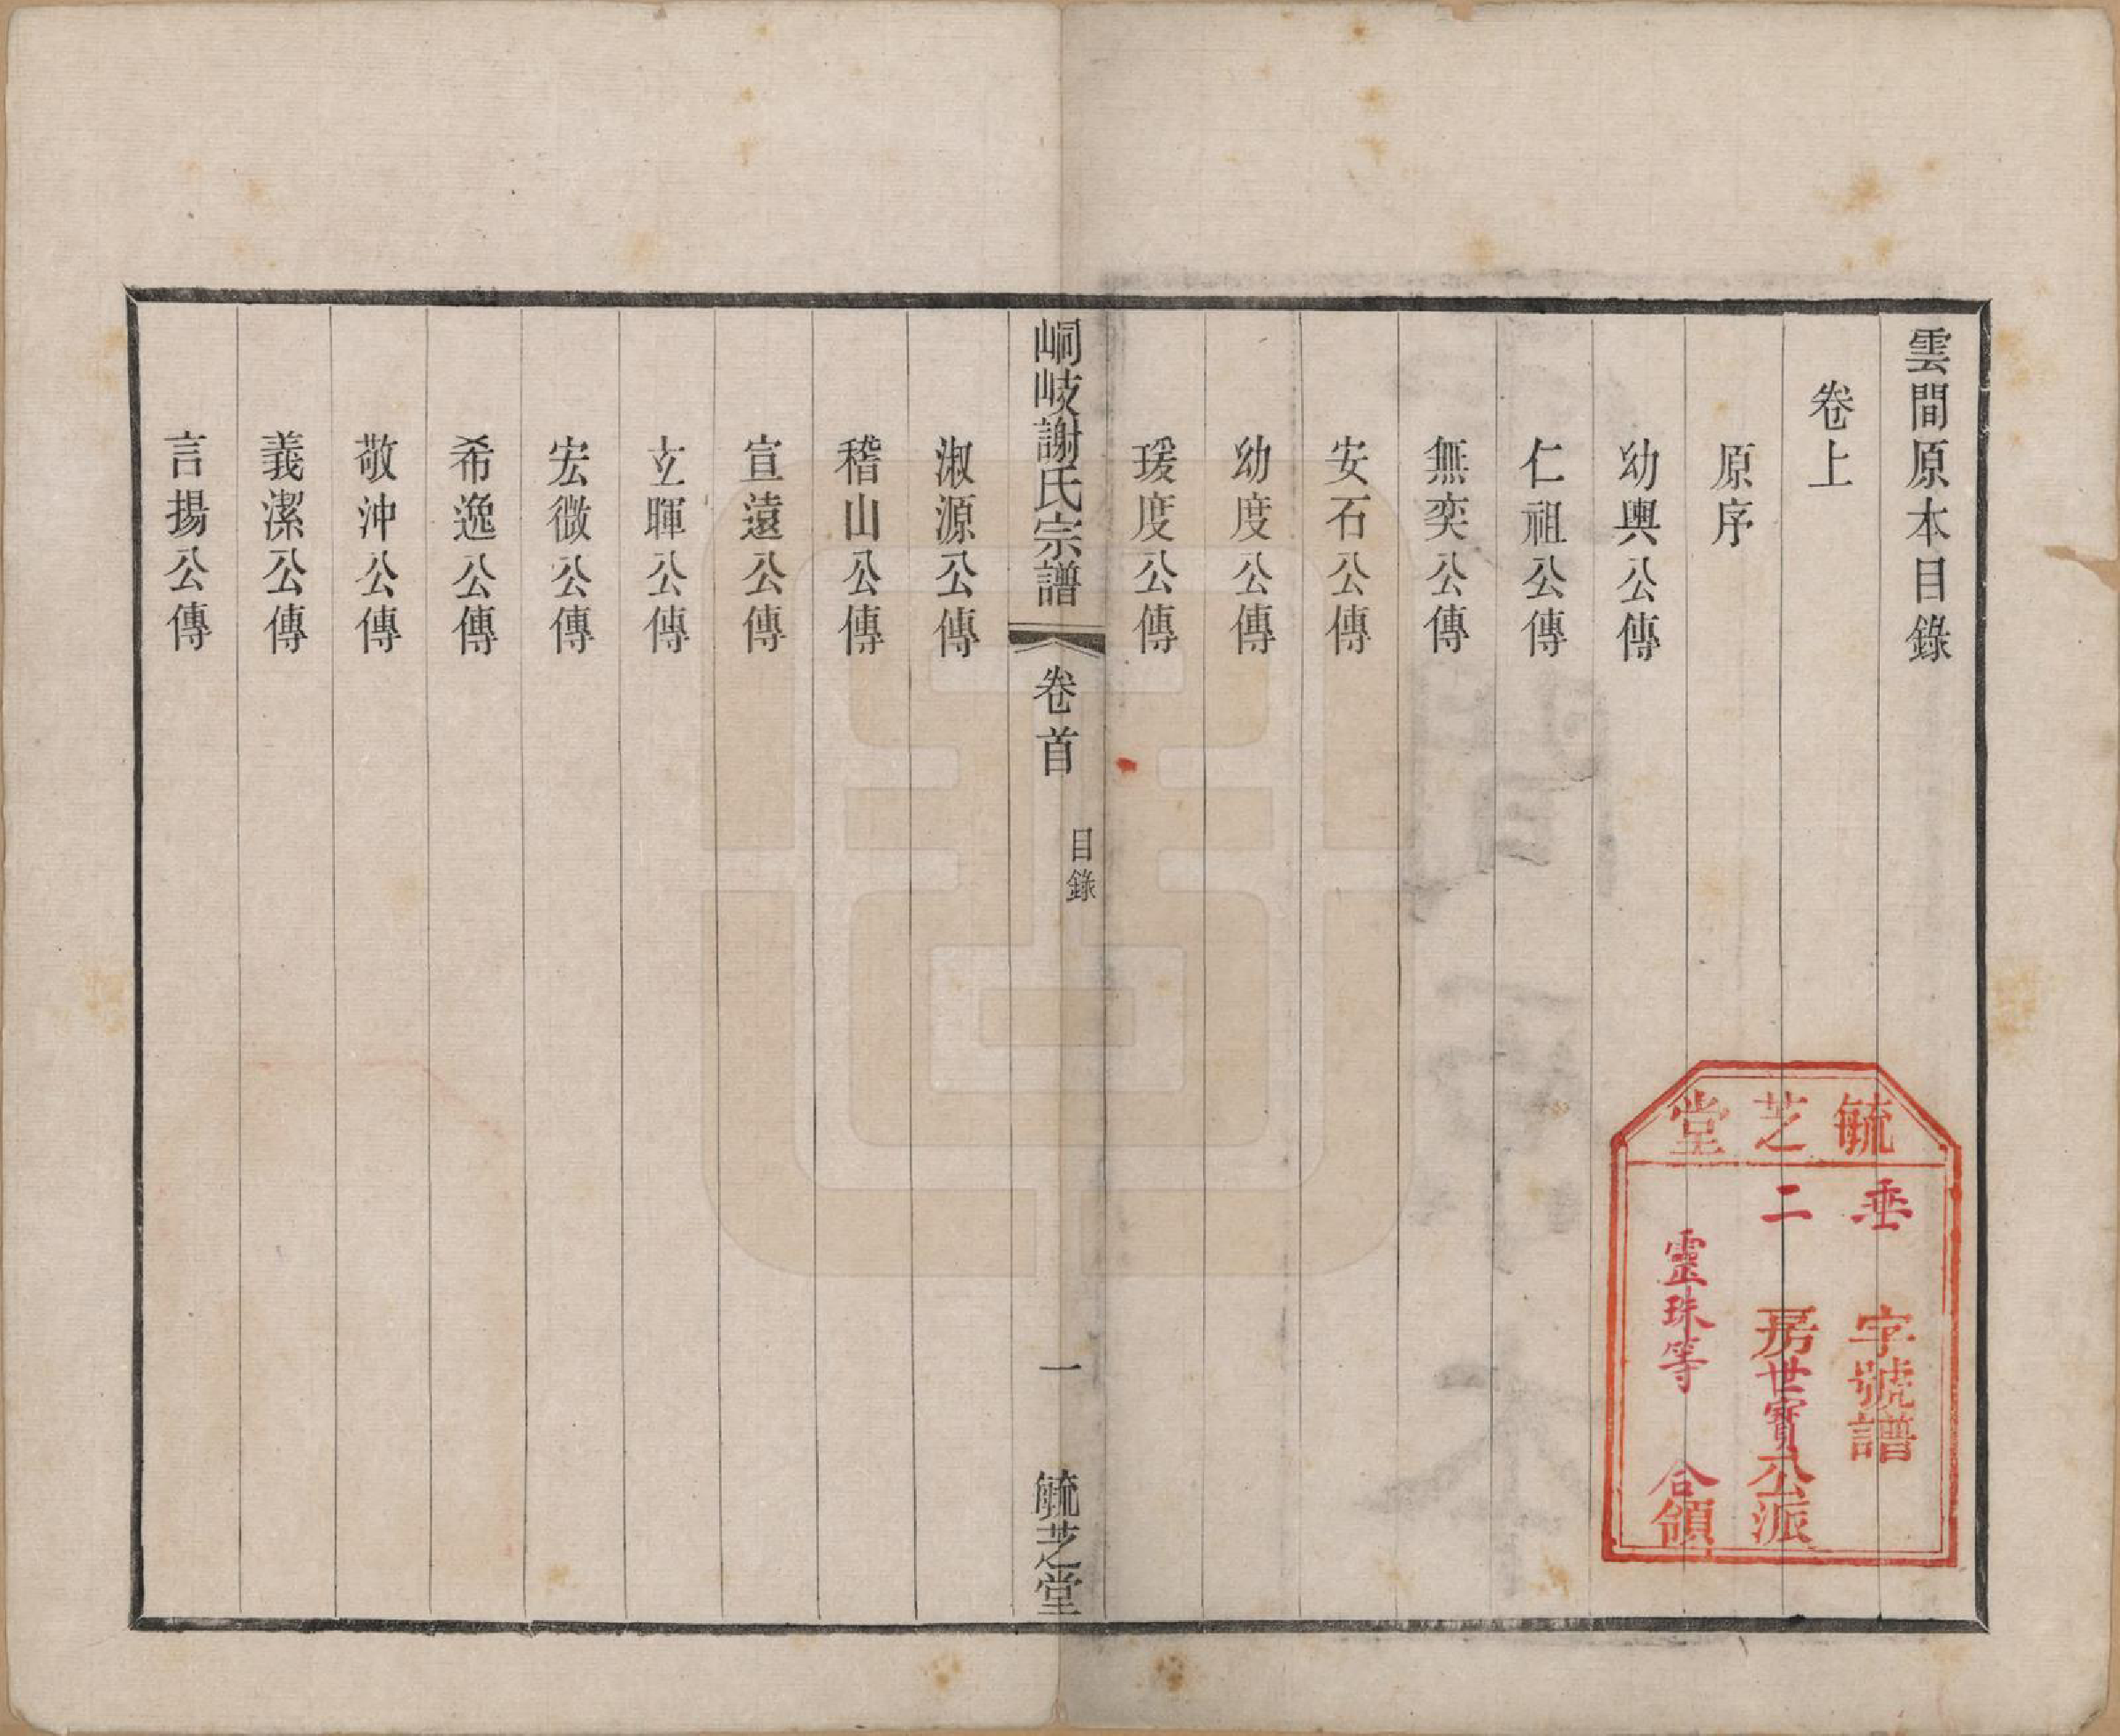 雲間原本目錄
卷上
原序
幼輿公傳
仁祖公傳
無奕公傳
安石公傳
幼度公傳
瑗度公傳
峒岐謝氏宗譜 卷首 目錄 一 毓芝堂
淑源公傳
稽山公傳
宣遠公傳
玄暉公傳
宏微公傳
希逸公傳
敬沖公傳
義潔公傳
言揚公傳
毓芝堂
垂字號譜
二房世寶公派
靈珠等合領